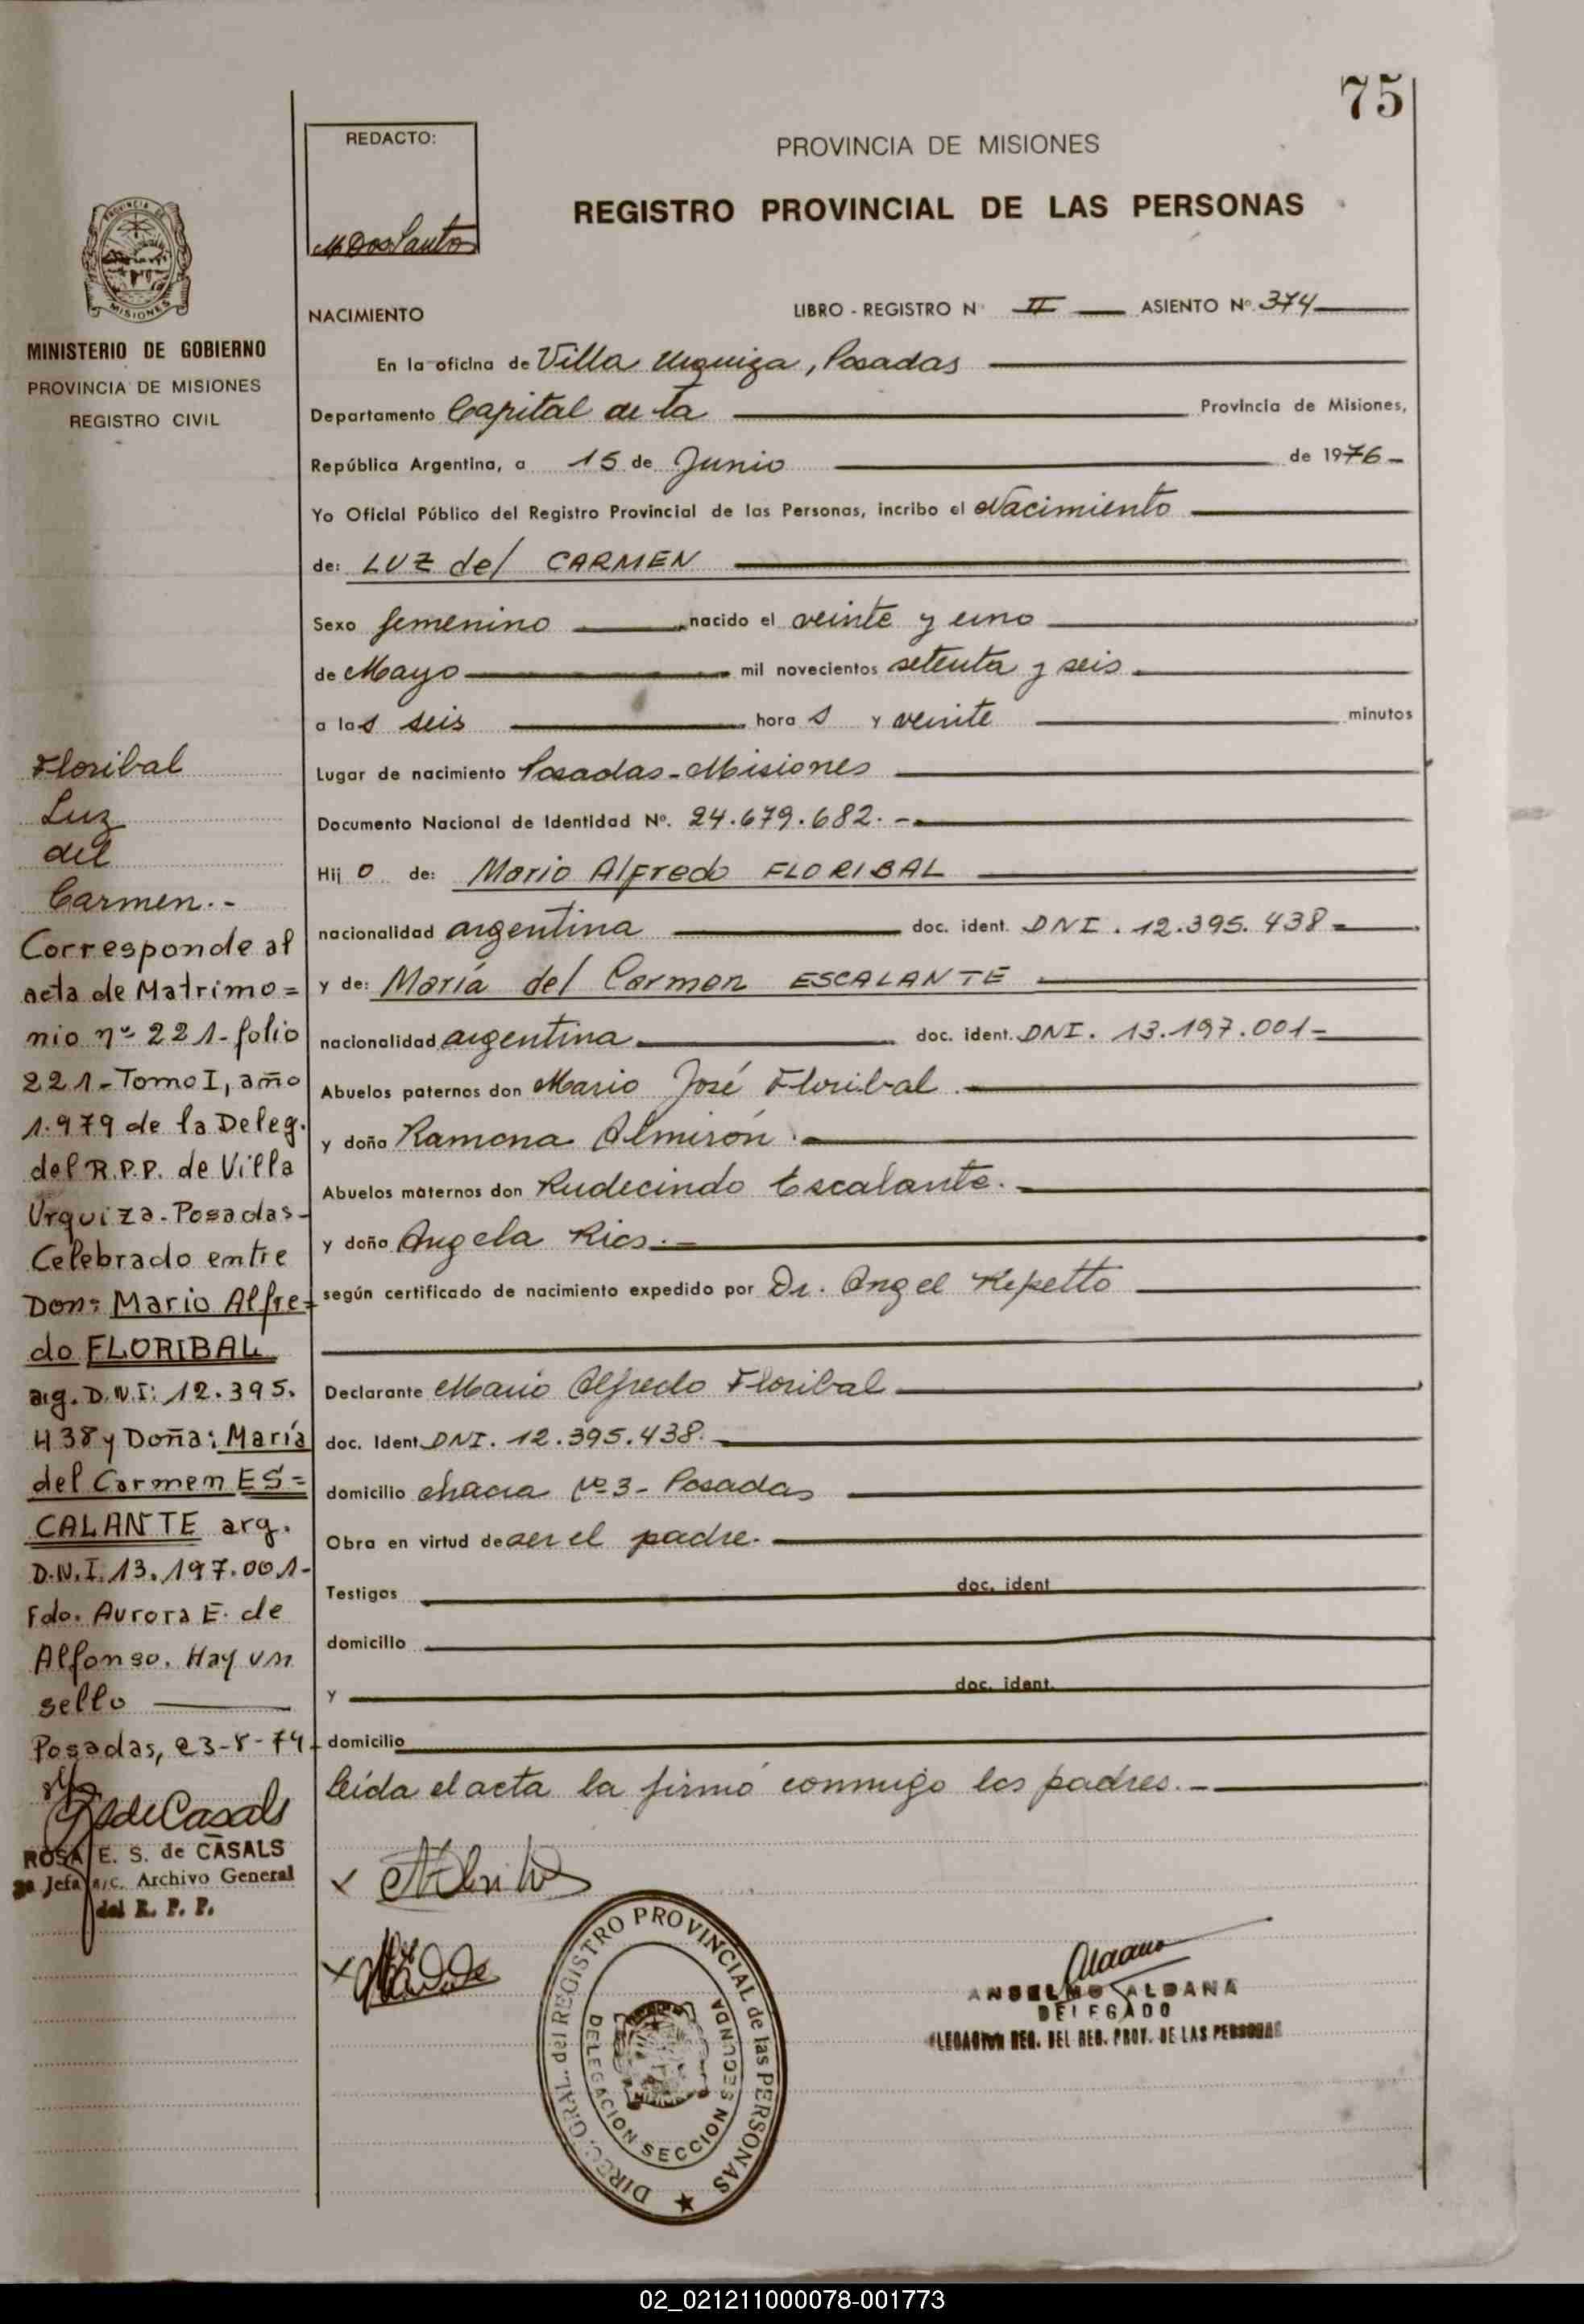 75
REDACTO:
M. Dos Santos
PROVINCIA DE MISIONES
REGISTRO PROVINCIAL DE LAS PERSONAS
PROVINCIA DE
MISIONES
MINISTERIO DE GOBIERNO
PROVINCIA DE MISIONES
REGISTRO CIVIL
NACIMIENTO LIBRO - REGISTRO Nº II ASIENTO Nº 374
En la oficina de Villa Urquiza, Posadas
Departamento Capital de la Provincia de Misiones,
República Argentina, a 15 de Junio de 1976-
Yo Oficial Público del Registro Provincial de las Personas, incribo el Nacimiento
de: LUZ del CARMEN
Sexo femenino nacido el veinte y uno
de Mayo mil novecientos setenta y seis
a las seis hora s y veinte minutos
Lugar de nacimiento Posadas-Misiones
Documento Nacional de Identidad Nº. 24.679.682.-
Hij o de: Mario Alfredo FLORIBAL
nacionalidad argentina doc. ident. DNI. 12.395.438-
y de: María del Carmen ESCALANTE
nacionalidad argentina doc. ident. DNI. 13.197.001-
Abuelos paternos don Mario José Floribal.-
y doña Ramona Almirón.-
Abuelos maternos don Rudecindo Escalante.-
y doña Angela Rios.-
según certificado de nacimiento expedido por Dr. Angel Repetto
Declarante Mario Alfredo Floribal
doc. Ident DNI. 12.395.438.-
domicilio chacra Nº 3- Posadas
Obra en virtud de ser el padre.-
Testigos doc. ident
domicilio
y doc. ident.
domicilio
Leída el acta la firmó conmigo los padres.-
Floribal
Luz
del
Carmen.-
Corresponde al
acta de Matrimo=
nio nº 221-folio
221-Tomo I, año
1.979 de la Deleg.
del R.P.P. de Villa
Urquiza-Posadas-
Celebrado entre
Don: Mario Alfre=
do FLORIBAL
arg. D.N.I: 12.395.
438 y Doña: María
del Carmen ES=
CALANTE arg.
D.N.I. 13.197.001-
Fdo. Aurora E. de
Alfonso. Hay un
sello
Posadas, 23-8-79-
de Casals
ROSA E. S. de CASALS
Jefa a/c. Archivo General
del R. P. P.
DIREC. GRAL. del REGISTRO PROVINCIAL de las PERSONAS
DELEGACION SECCION SEGUNDA
ANSELMO ALDANA
DELEGADO
REG. DEL REG. PROV. DE LAS PERSONAS
02_021211000078-001773